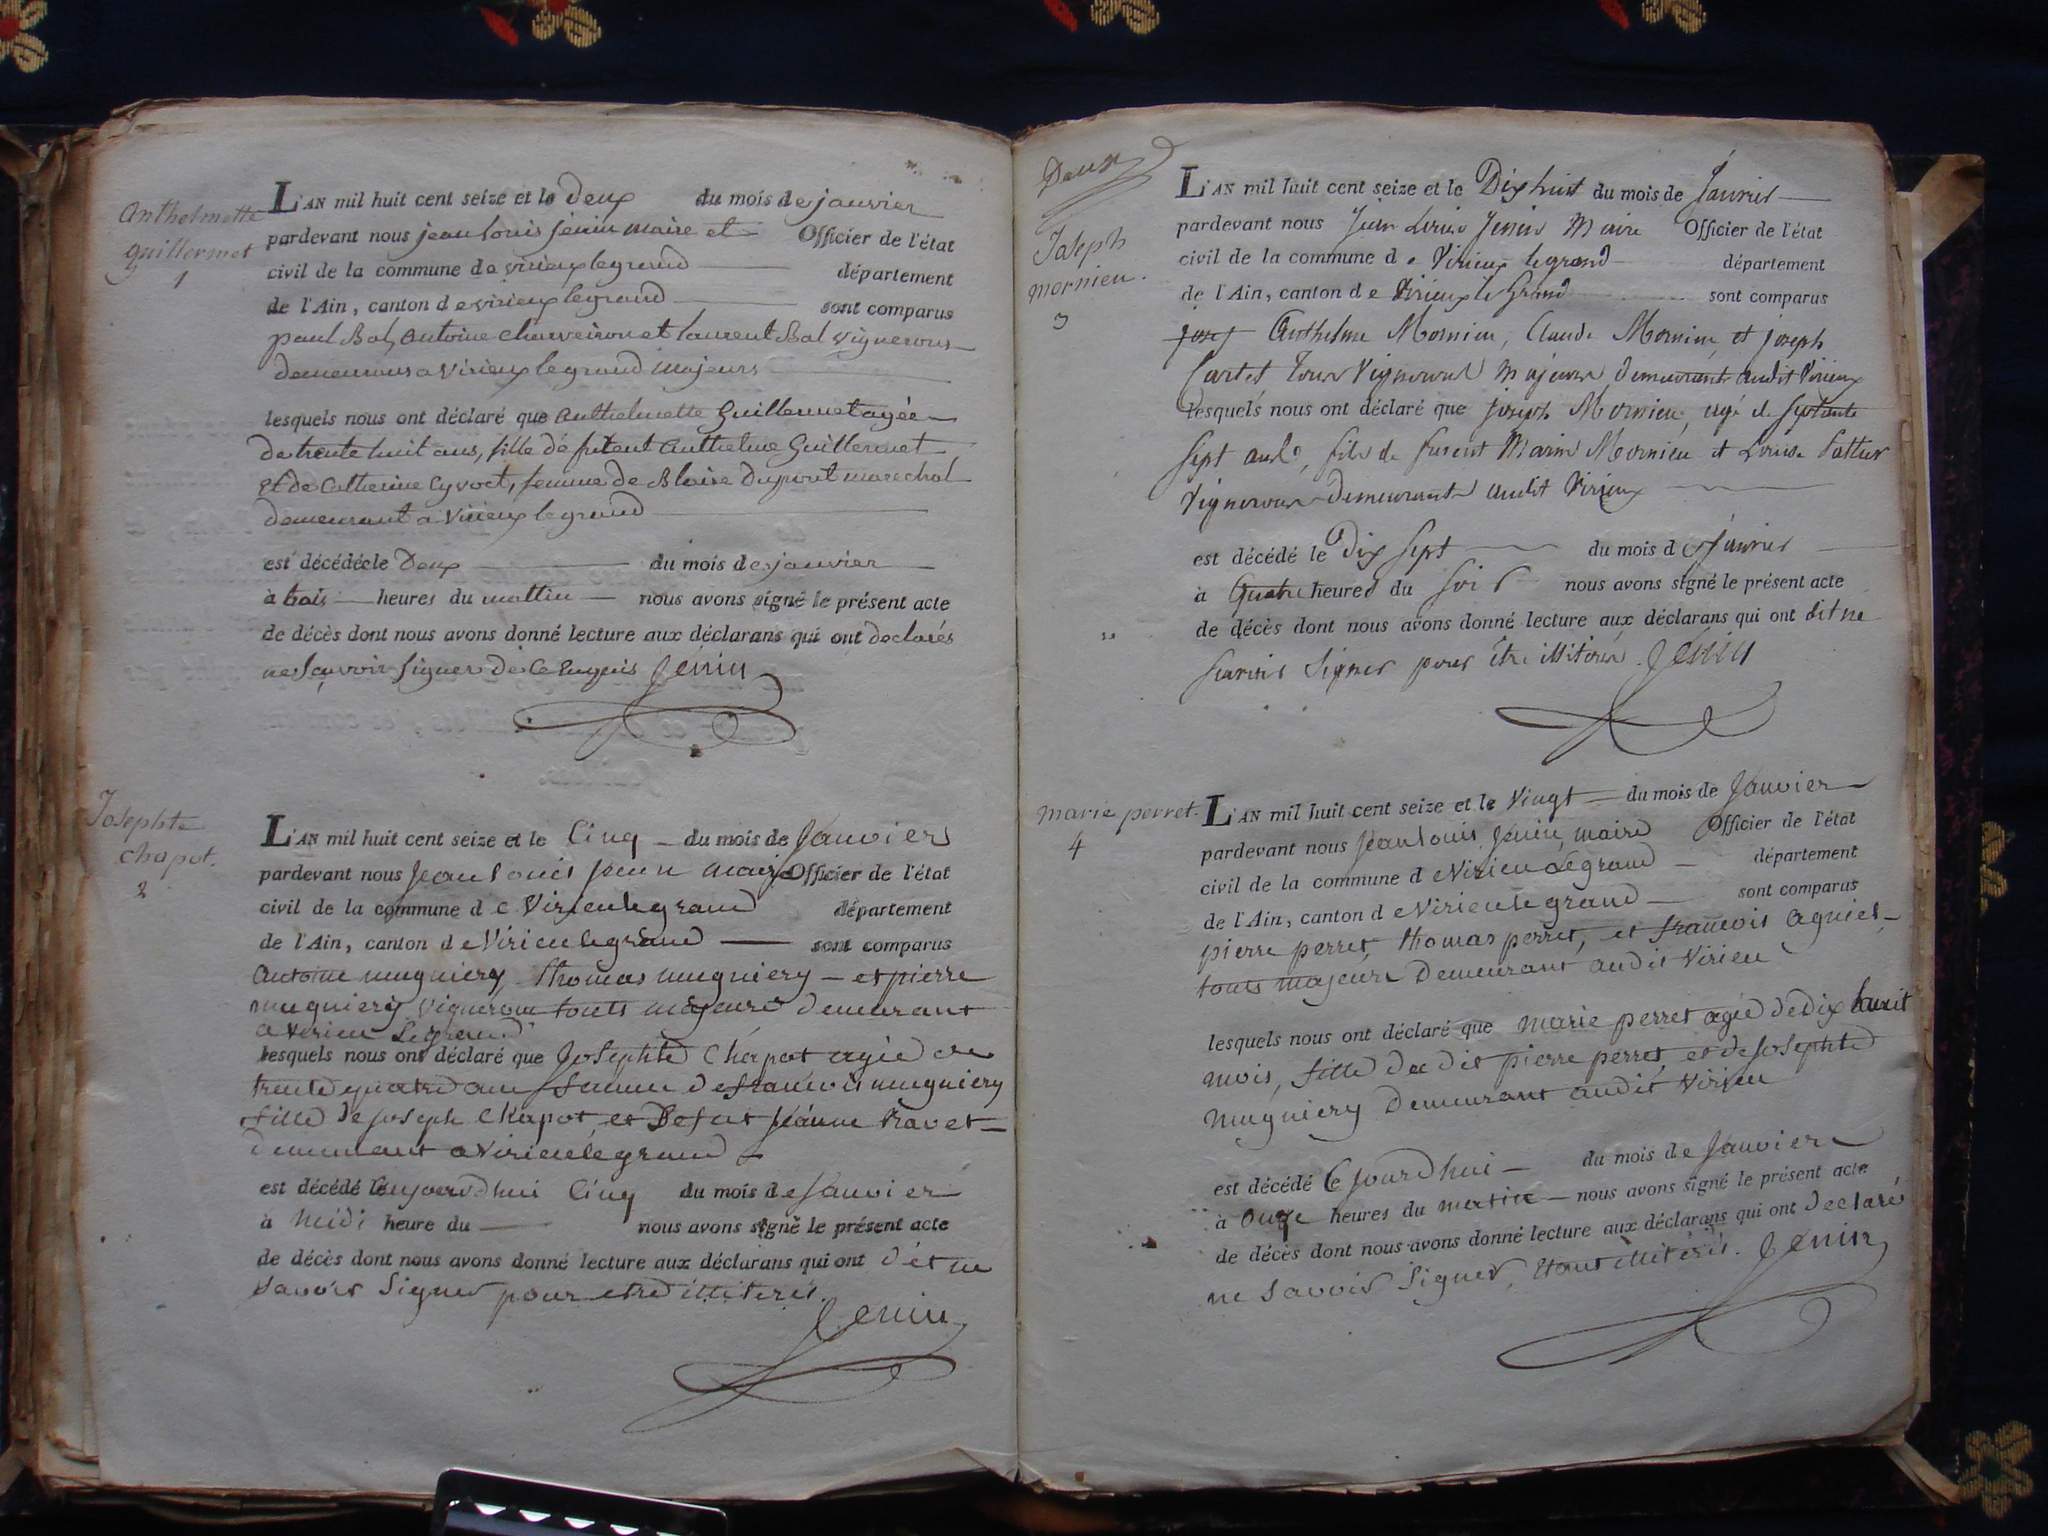 Anthelmette
guillermet
1
L'AN mil huit cent seize et le deux du mois de janvier
pardevant nous jean louis jenin maire et Officier de l'état
civil de la commune de virieux legrand département
de l'Ain, canton de virieux legrand sont comparus
paul Bal, antoine charveiron et laurent Bal vignerons
demeurans a virieux legrand majeurs
lesquels nous ont déclaré que anthelmette Guillermet agée
de trente huit ans, fille défunt anthelme Guillermet
et de Catherine Cyvoct, femme de Blaise Dupont marechal
demeurant a virieux legrand
est décédée le Deux du mois de janvier
à trois heures du mattin nous avons signé le présent acte
de décès dont nous avons donné lecture aux déclarans qui ont declarés
ne sçavoir signer de ce enquis Jenin
Josephte
Chapot.
2
L'AN mil huit cent seize et le Cinq du mois de Janvier
pardevant nous Jean Louis jenin maire Officier de l'état
civil de la commune de Virieu le grand département
de l'Ain, canton de Virieu le grand sont comparus
antoine mugniery thomas mugniery et pierre
mugniery vigneron touts majeurs demeurant
a virieu Legrand
lesquels nous ont déclaré que Josephte Chapot agée de
trente quatre ans femme de francois mugniery
fille de joseph Chapot et De fut jeanne travet
demeurant a Virieu le grand
est décédé le aujourd'hui Cinq du mois de Janvier
à midi heure du nous avons signé le présent acte
de décès dont nous avons donné lecture aux déclarans qui ont dit ne
savoir Signer pour etre illiterés.
Jenin
Deux
Joseph
mornieu.
3
L'AN mil huit cent seize et le Dix huit du mois de Janvier
pardevant nous Jean Louis Jenin Maire Officier de l'état
civil de la commune de Virieux legrand département
de l'Ain, canton de Virieux le Grand sont comparus
Anthelme Mornieu, Claude Mornieu, et joseph
Cartet tous Vignerons Majeurs demeurants audit Virieux
lesquels nous ont déclaré que joseph Mornieu, agé de septante
sept ans, fils de furent Marin Mornieu et Louise
Vigneron demeurants audit Virieux
est décédé le Dix sept du mois de Janvier
à Quatre heures du soir nous avons signé le présent acte
de décès dont nous avons donné lecture aux déclarans qui ont dit ne
savoir Signer pour être illiterés. Jenin
marie perret.
4
L'AN mil huit cent seize et le Vingt du mois de Janvier
pardevant nous Jean Louis Jenin maire Officier de l'état
civil de la commune de Virieu Le grand département
de l'Ain, canton de Virieu le grand sont comparus
pierre perret, thomas perret, et francois agniel
touts majeurs Demeurant audit Virieu
lesquels nous ont déclaré que marie perret agée de dix huit
mois, fille du dit pierre perret, et de josephte
mugniery Demeurant audit Virieu
est décédé Ce jourd'hui du mois de Janvier
à onze heures du matin nous avons signé le présent acte
de décès dont nous avons donné lecture aux déclarans qui ont declaré
ne Savoir Signer, étant illiterés. Jenin